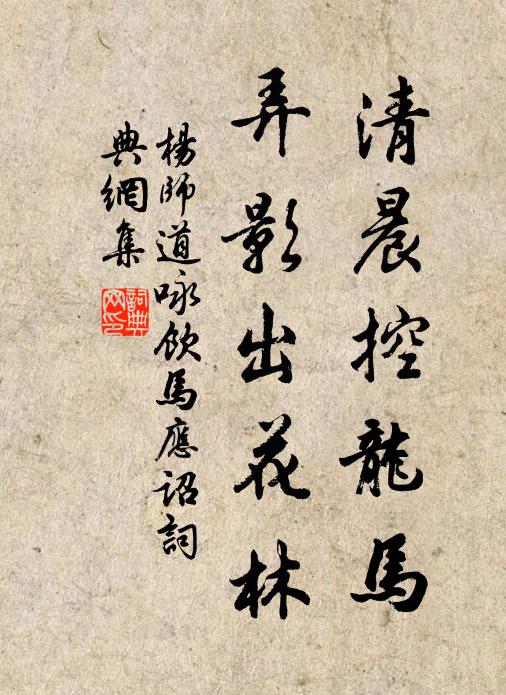 清晨控龍馬
弄影出花林
楊師道咏飲馬應詔詞
典網集
詞典
网印